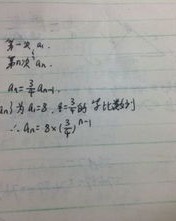 第一次 a₁.
第n次 aₙ.
aₙ = 3/4 aₙ₋₁.
aₙ}为 a₁=8, q=3/4的 等比数列
∴ aₙ = 8×(3/4)ⁿ⁻¹